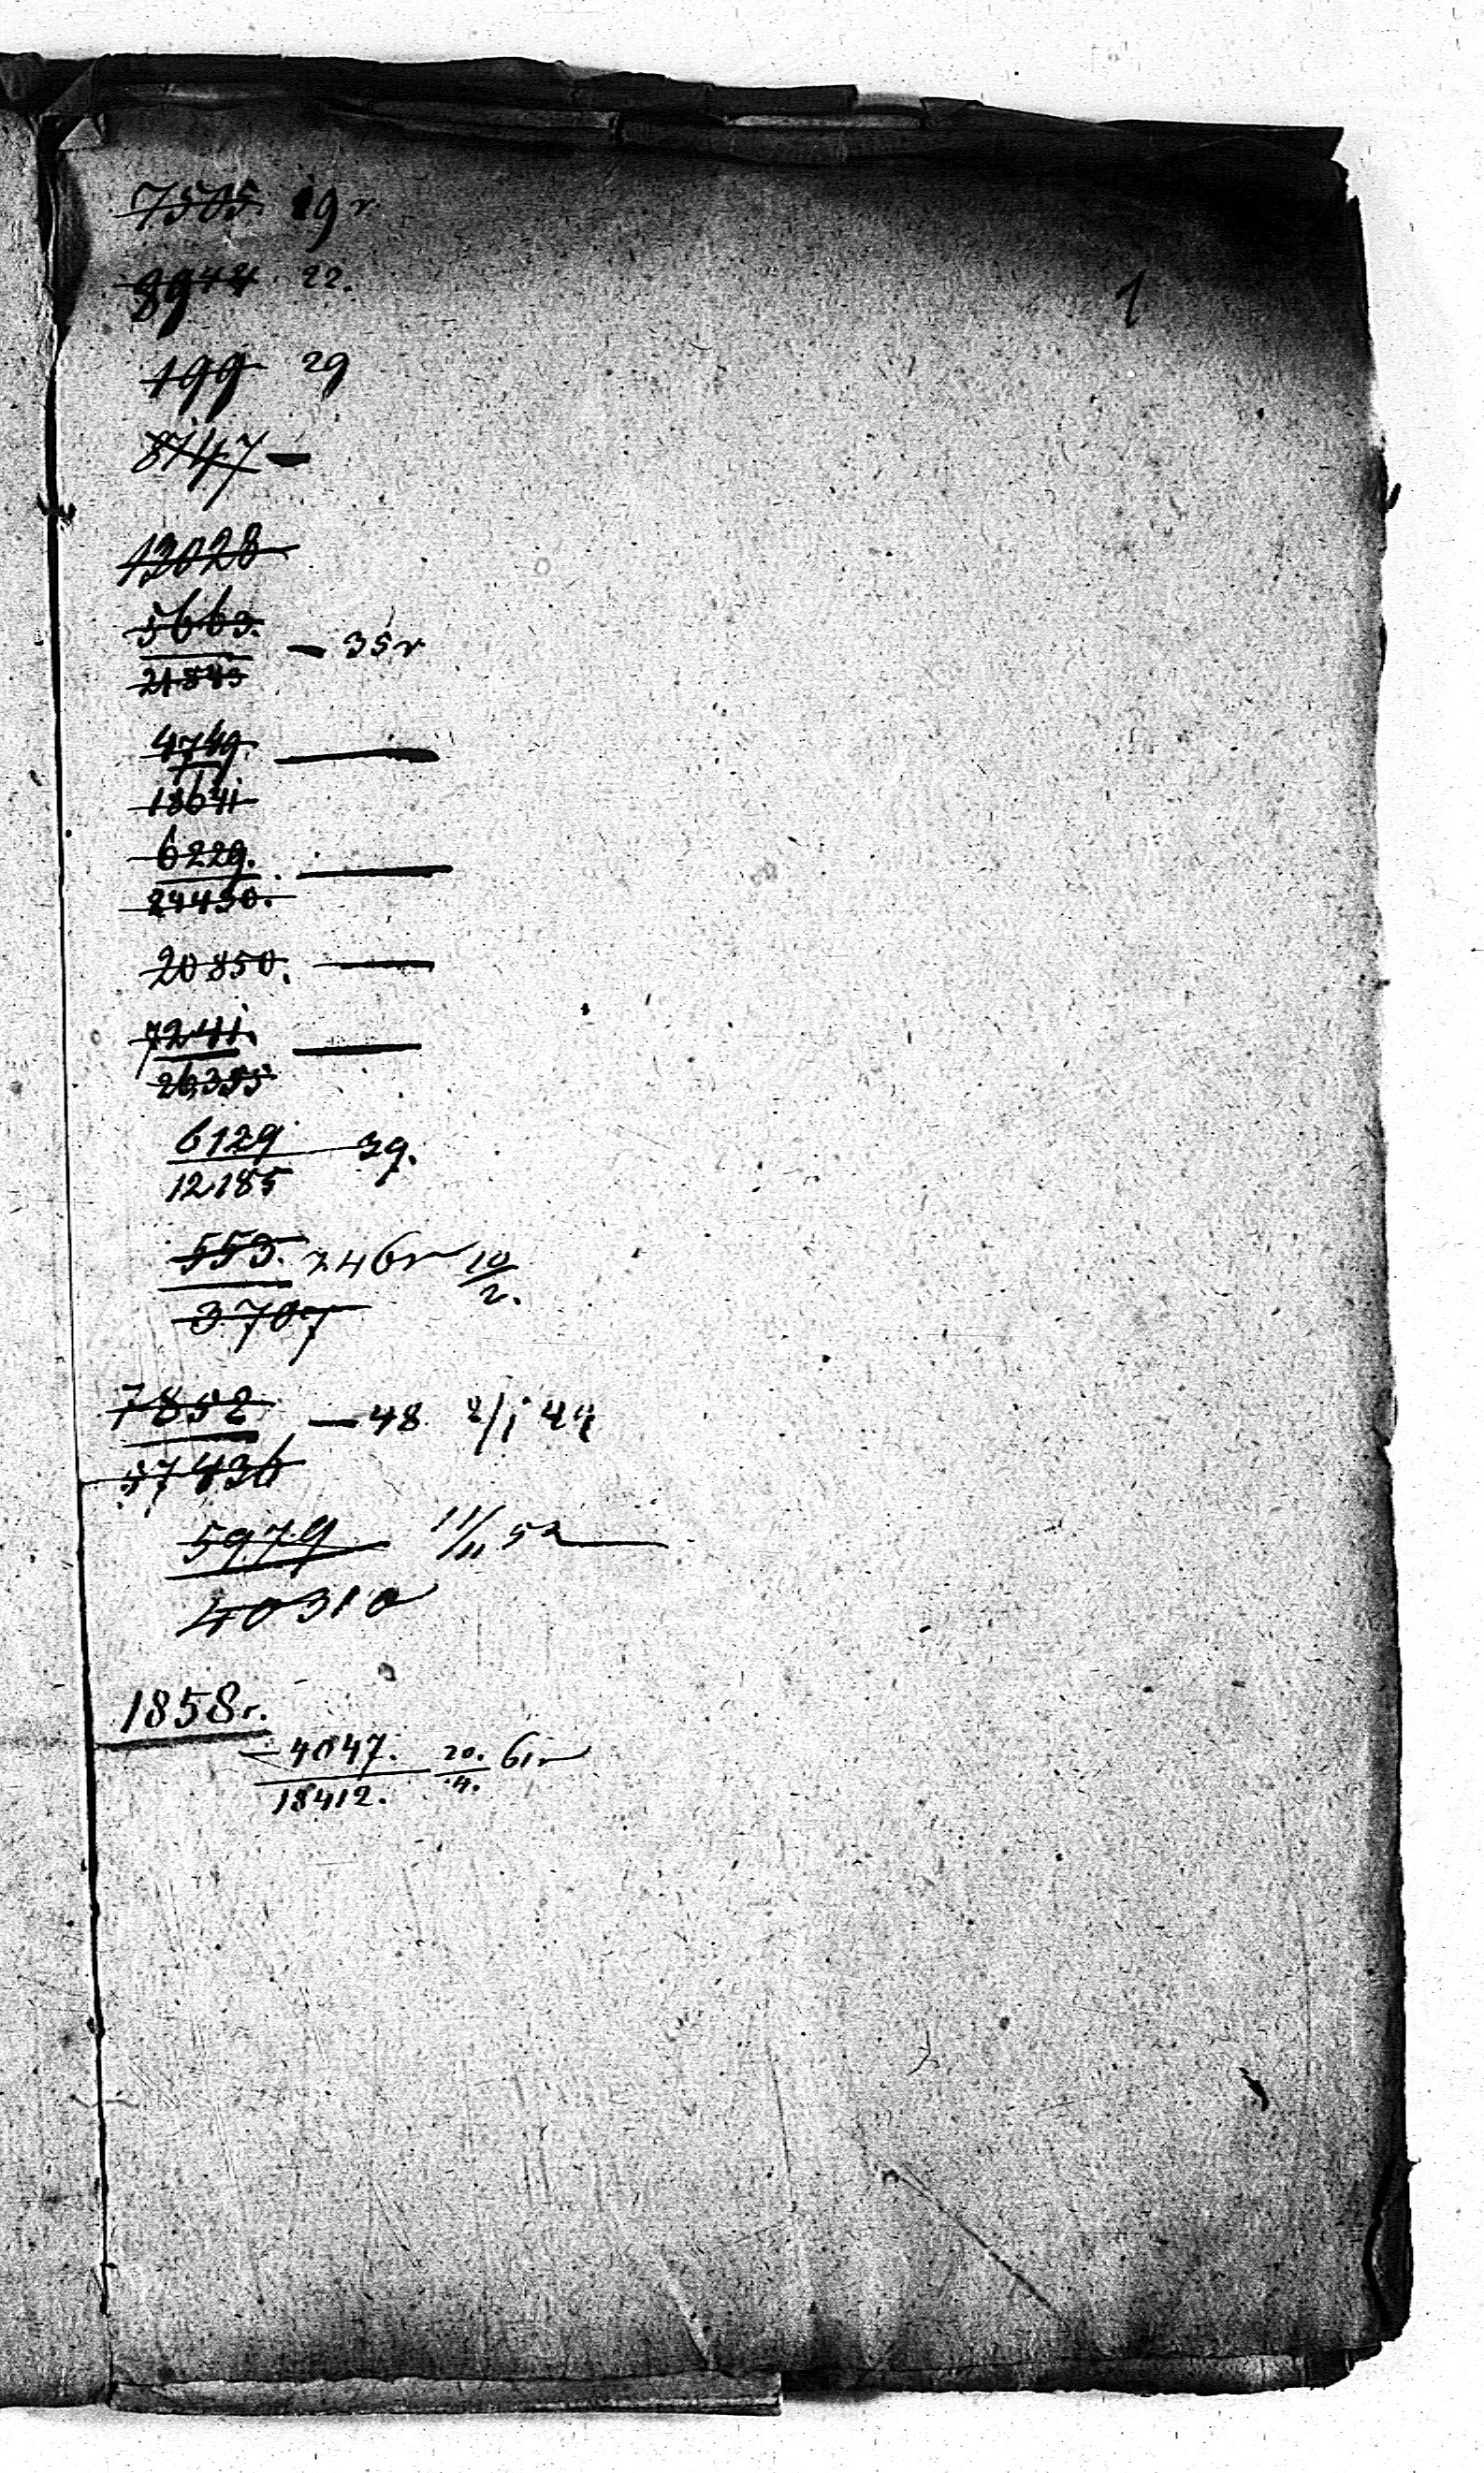 7505. 19 r.
8944 22.
1
199 29
8747 —
13028
5663. — 35 r
21845
4749. —
18641
6229. —
24430.
20850. —
7241. —
26355
6129 — 39.
12185
553. 746 r 10/2.
3707
7852 — 48 2/i 44
37436
5979 11/11 52
40310
1858 r.
— 4047. 20./4. 61 r
18412.